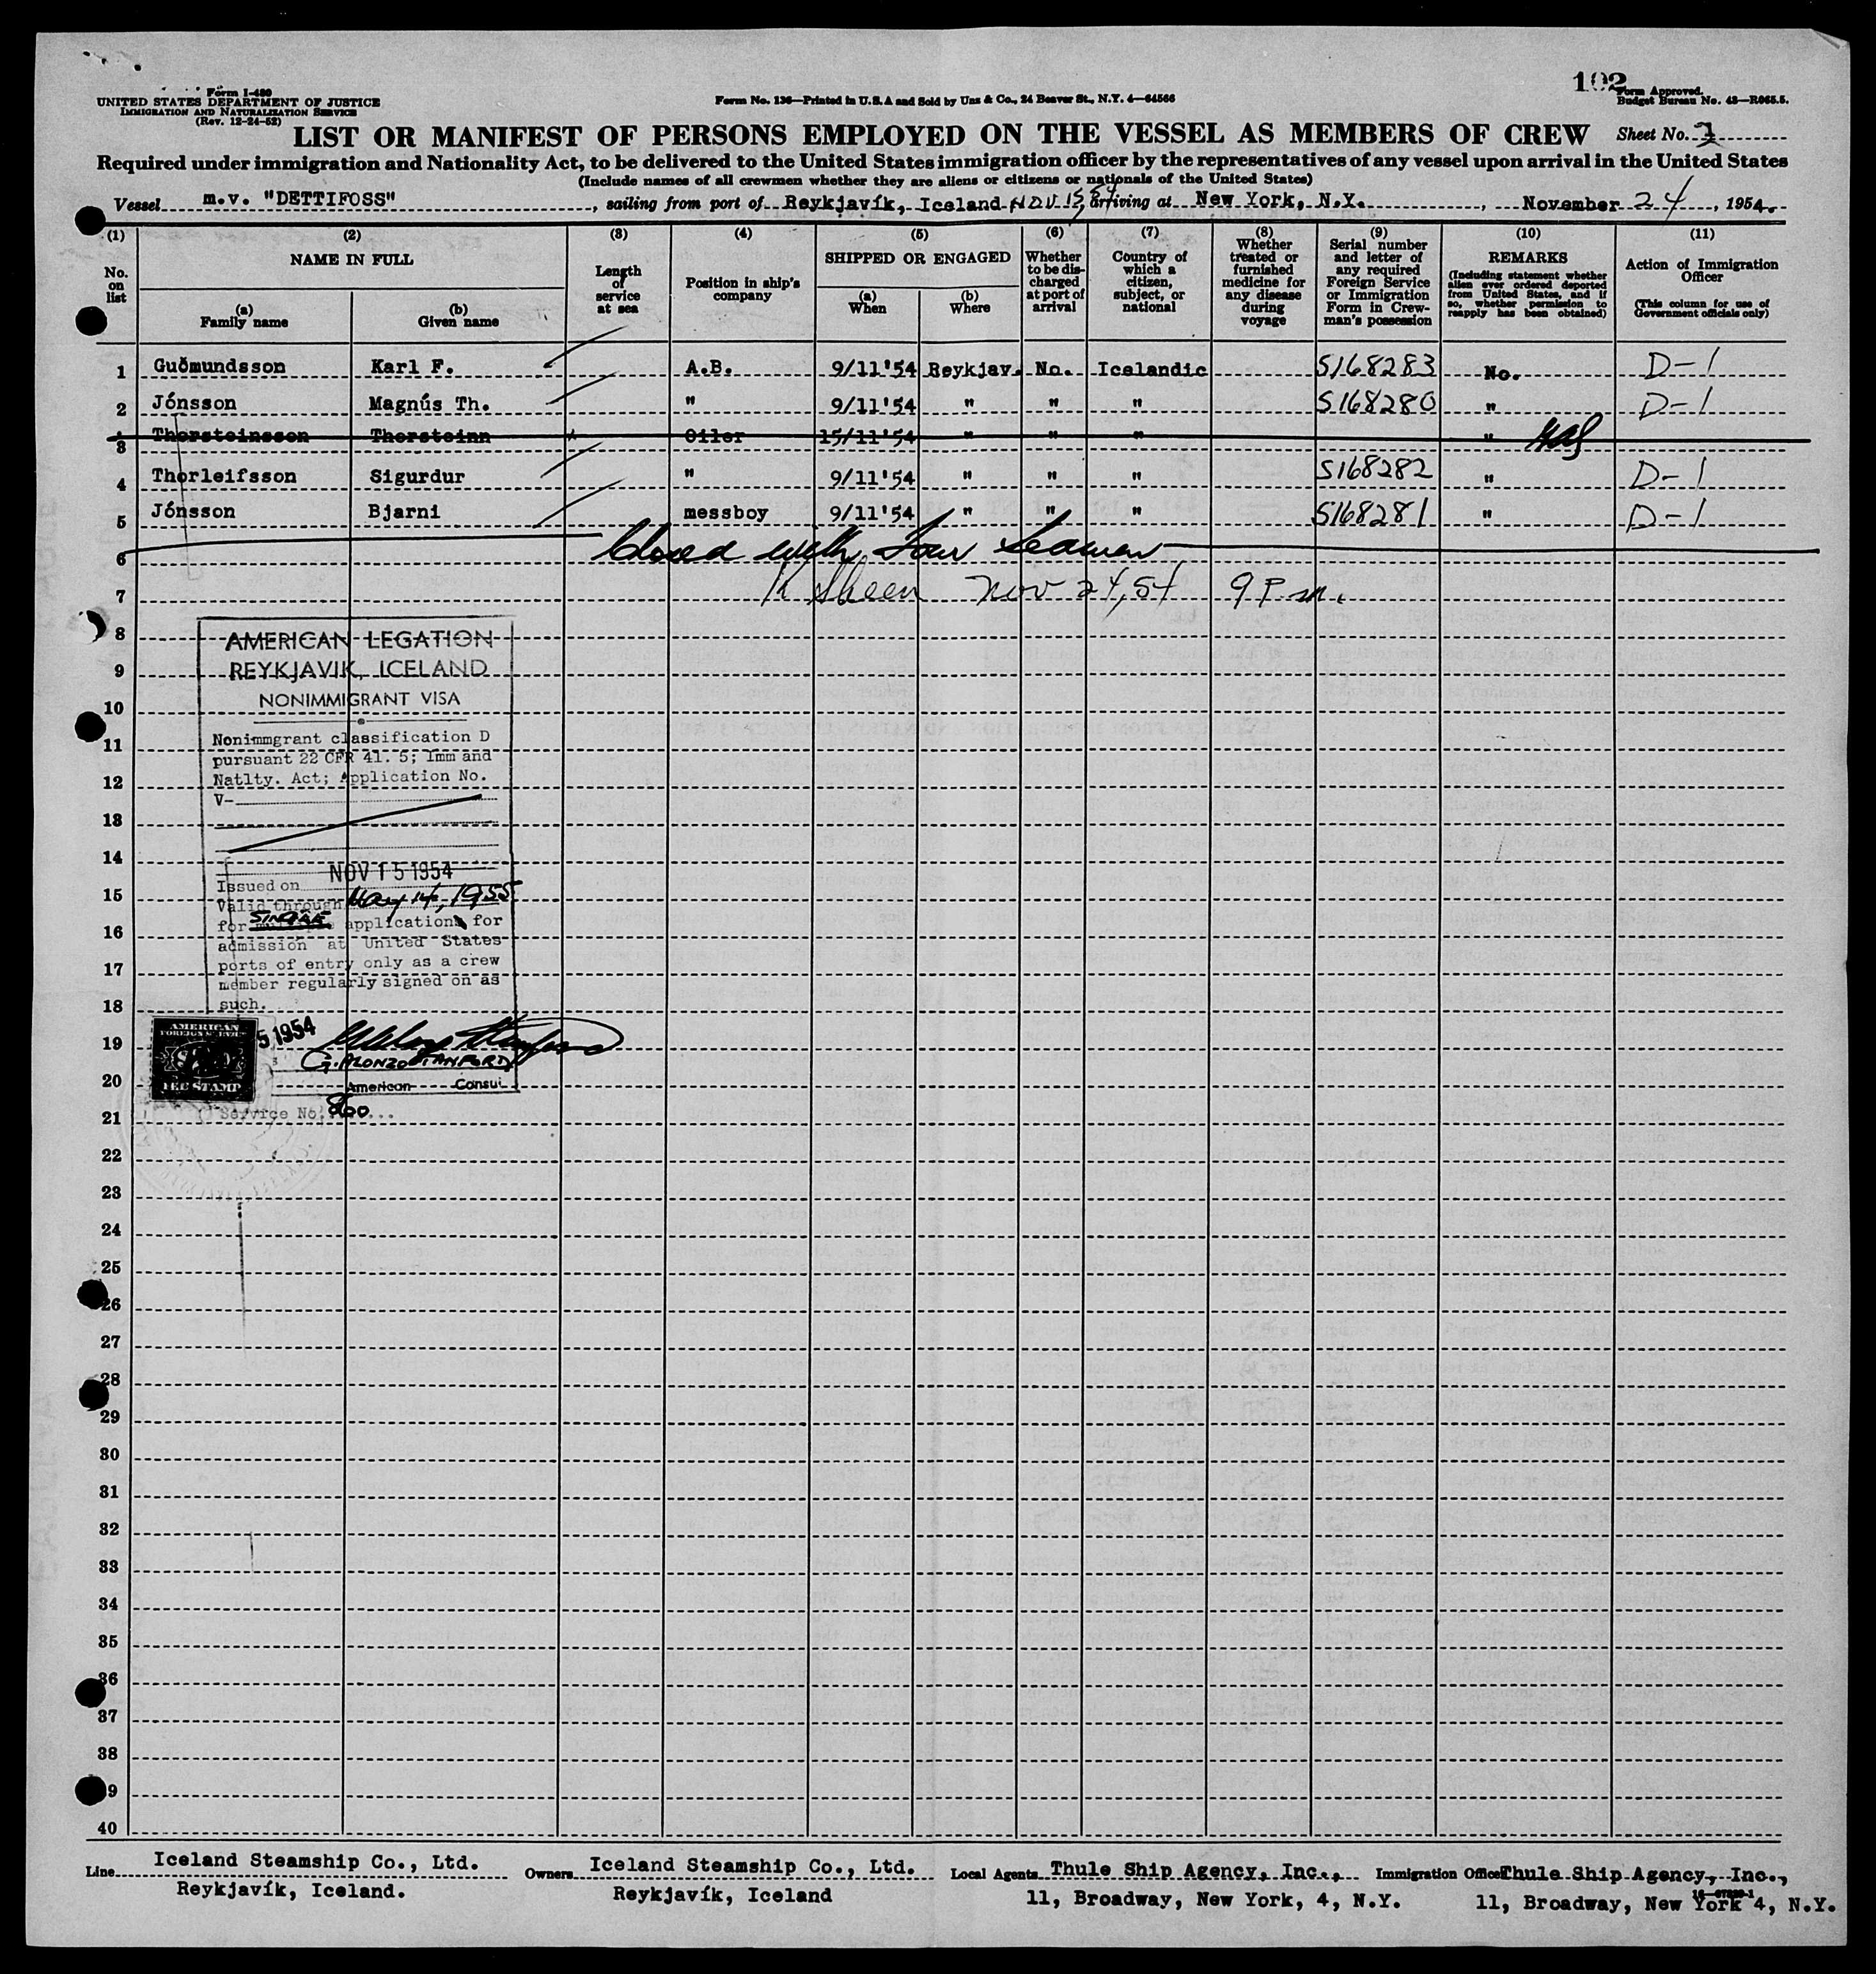 102
Form I-480
UNITED STATES DEPARTMENT OF JUSTICE
IMMIGRATION AND NATURALIZATION SERVICE
(Rev. 12-24-52)
Form No. 136—Printed in U.S.A and Sold by Unz & Co., 24 Beaver St., N.Y. 4—64566
Form Approved.
Budget Bureau No. 43—R065.5.
LIST OR MANIFEST OF PERSONS EMPLOYED ON THE VESSEL AS MEMBERS OF CREW Sheet No.
Required under immigration and Nationality Act, to be delivered to the United States immigration officer by the representatives of any vessel upon arrival in the United States
(Include names of all crewmen whether they are aliens or citizens or nationals of the United States)
Vessel m.v. "DETTIFOSS", sailing from port of Reykjavík, Iceland arriving at New York, N.Y., November 24, 1954.
(1) (2) (3) (4) (5) (6) (7) (8) (9) (10) (11)
No. on list
NAME IN FULL
(a) Family name
(b) Given name
Length of service at sea
Position in ship's company
SHIPPED OR ENGAGED
(a) When
(b) Where
Whether to be discharged at port of arrival
Country of which a citizen, subject, or national
Whether treated or furnished medicine for any disease during voyage
Serial number and letter of any required Foreign Service or Immigration Form in Crewman's possession
REMARKS
(Including statement whether alien ever ordered deported from United States, and if so, whether permission to reapply has been obtained)
Action of Immigration Officer
(This column for use of Government officials only)
1 Guðmundsson Karl F. A.B. 9/11'54 Reykjav. No. Icelandic S168283 No. D-1
2 Jónsson Magnús Th. " 9/11'54 " " " S168280 " D-1
3 Thorsteinsson Thorsteinn Oiler 15/11'54 " " " "
4 Thorleifsson Sigurdur " 9/11'54 " " " S168282 " D-1
5 Jónsson Bjarni messboy 9/11'54 " " " S168281 " D-1
6 Closed with Four Seamen
7 K Sheen Nov 24, 54 9 P.m.
8
9
10
11
12
13
14
15
16
17
18
19
20
21
22
23
24
25
26
27
28
29
30
31
32
33
34
35
36
37
38
39
40
AMERICAN LEGATION
REYKJAVIK, ICELAND
NONIMMIGRANT VISA
Nonimmgrant classification D
pursuant 22 CFR 41. 5; Imm and
Natlty. Act; Application No.
V-
Issued on NOV 15 1954
Valid through May 14, 1955
for SINGLE application for
admission at United States
ports of entry only as a crew
member regularly signed on as
such.
5 1954
AMERICAN
FOREIGN SERVICE
FEE STAMP
G. ALONZO STANFORD
American Consul
Service No. 860
Line Iceland Steamship Co., Ltd.
Reykjavík, Iceland.
Owners Iceland Steamship Co., Ltd.
Reykjavík, Iceland
Local Agents Thule Ship Agency, Inc.,
11, Broadway, New York, 4, N.Y.
Immigration Office Thule Ship Agency, Inc.,
11, Broadway, New York 4, N.Y.